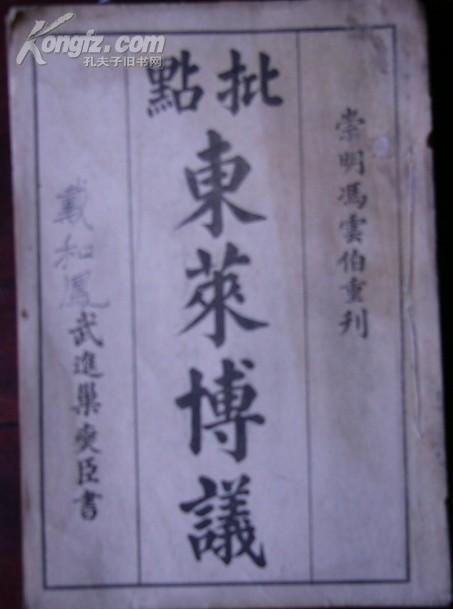 Kongfz.com
孔夫子旧书网
崇明馮雲伯重刋
批點
東萊博議
武進巢奐臣書
戴和鳳